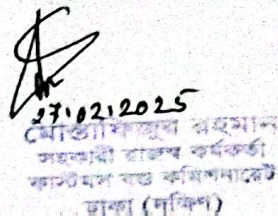 27.02.2025
মোস্তাফিজুর রহমান
সহকারী রাজস্ব কর্মকর্তা
কাস্টমস বন্ড কমিশনারেট
ঢাকা (দক্ষিণ)